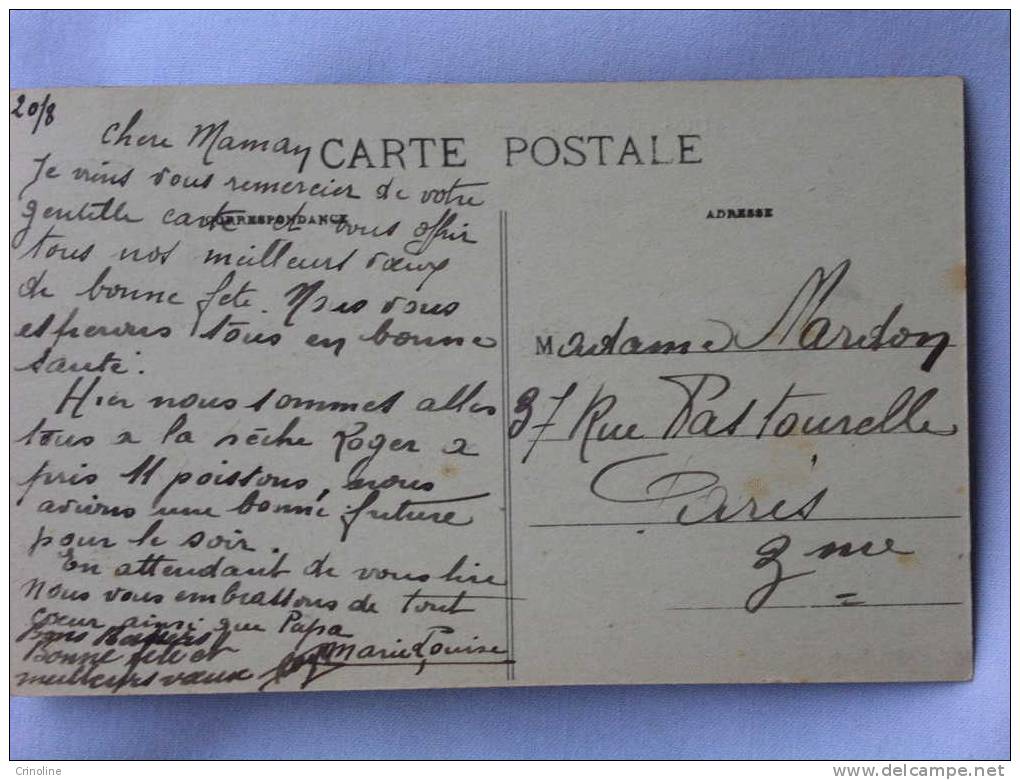 20/8
Chere Maman
CARTE POSTALE
Je viens vous remercier de votre
gentille carte et vous offrir
CORRESPONDANCE
tous nos meilleurs vœux
de bonne fete. Nous vous
esperons tous en bonne
santé.
Hier nous sommes alles
tous a la pêche Roger a
pris 11 poissons, nous
avions une bonne friture
pour le soir.
En attendant de vous lire
nous vous embrassons de tout
cœur ainsi que Papa
Marie Louise
Bons Baisers
Bonne fete et
meilleurs vœux
ADRESSE
Madame Mardon
37 Rue Pastourelle
Paris
3me
Crinoline
delcampe.net